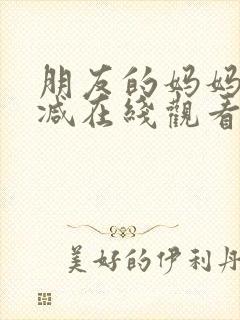 朋友的妈妈
减在綫觀看
美好的伊利丹